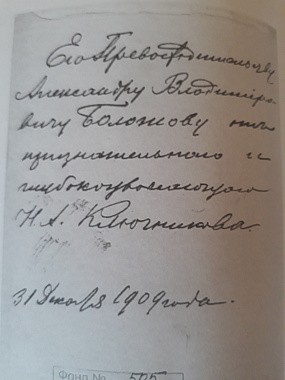 Его Превосходительству
Александру Владиміро-
вичу Болотову отъ
признательнаго и
глубокоуважающаго
Н. А. Ключникова.
31 Декабря 1909 года.
Фонд №